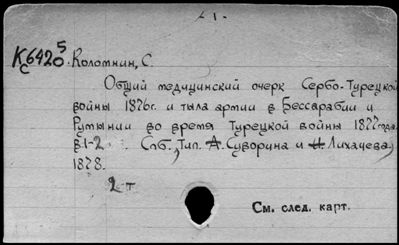 1.
К 6420 5
с
Коломнин, С.
Общий медицинский очерк Сербо-Турецкой
войны 1876г. и тыла армии в Бессарабии и
Румынии во время Турецкой войны 1877 года.
в.1-2 Спб., Тип. А. Суворина и Лихачева,
1878.
2 т
См. след. карт.